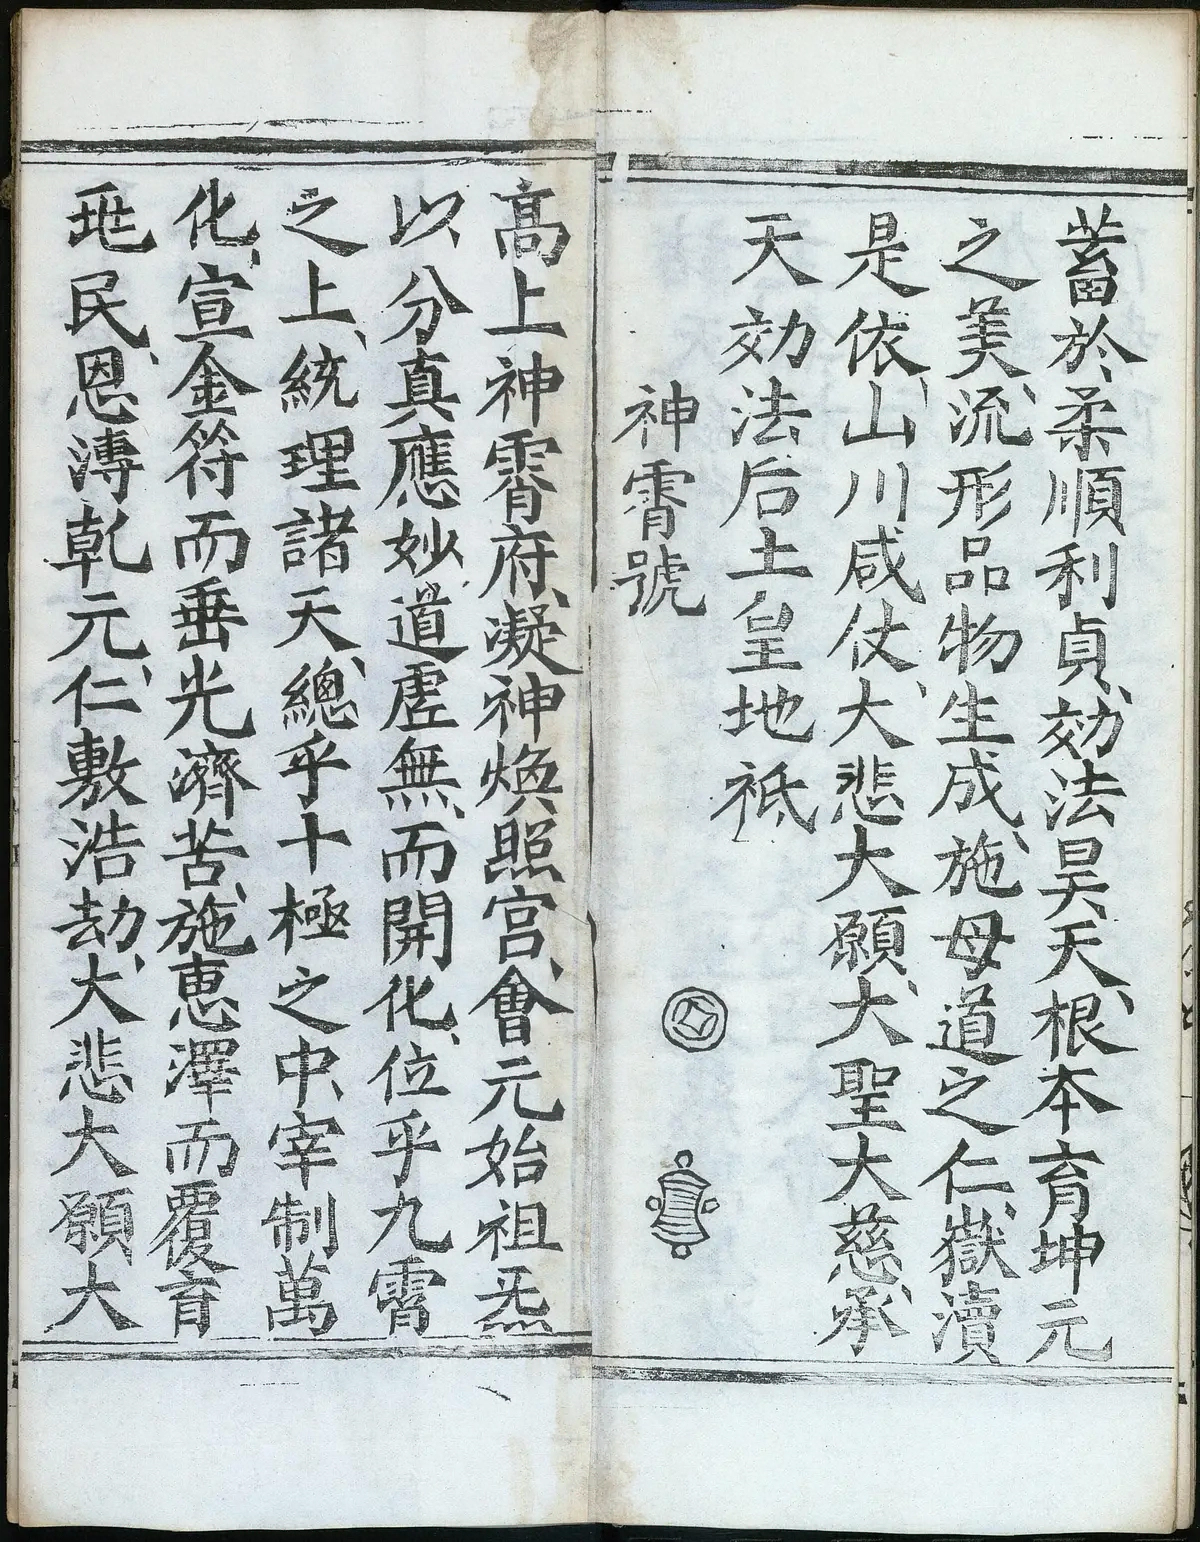 蓄於柔順利貞、効法昊天、根本育坤元
之美、流形品物生成、施母道之仁、嶽瀆
是依、山川咸仗、大悲大願、大聖大慈、承
天効法后土皇地祇
神霄號
高上神霄府、凝神煥照宮、會元始祖炁
以分真應妙道虛無、而開化、位乎九霄
之上、統理諸天、總乎十極之中、宰制萬
化、宣金符而垂光濟苦、施惠澤而覆育
兆民、恩溥乾元、仁敷浩劫、大悲大願大